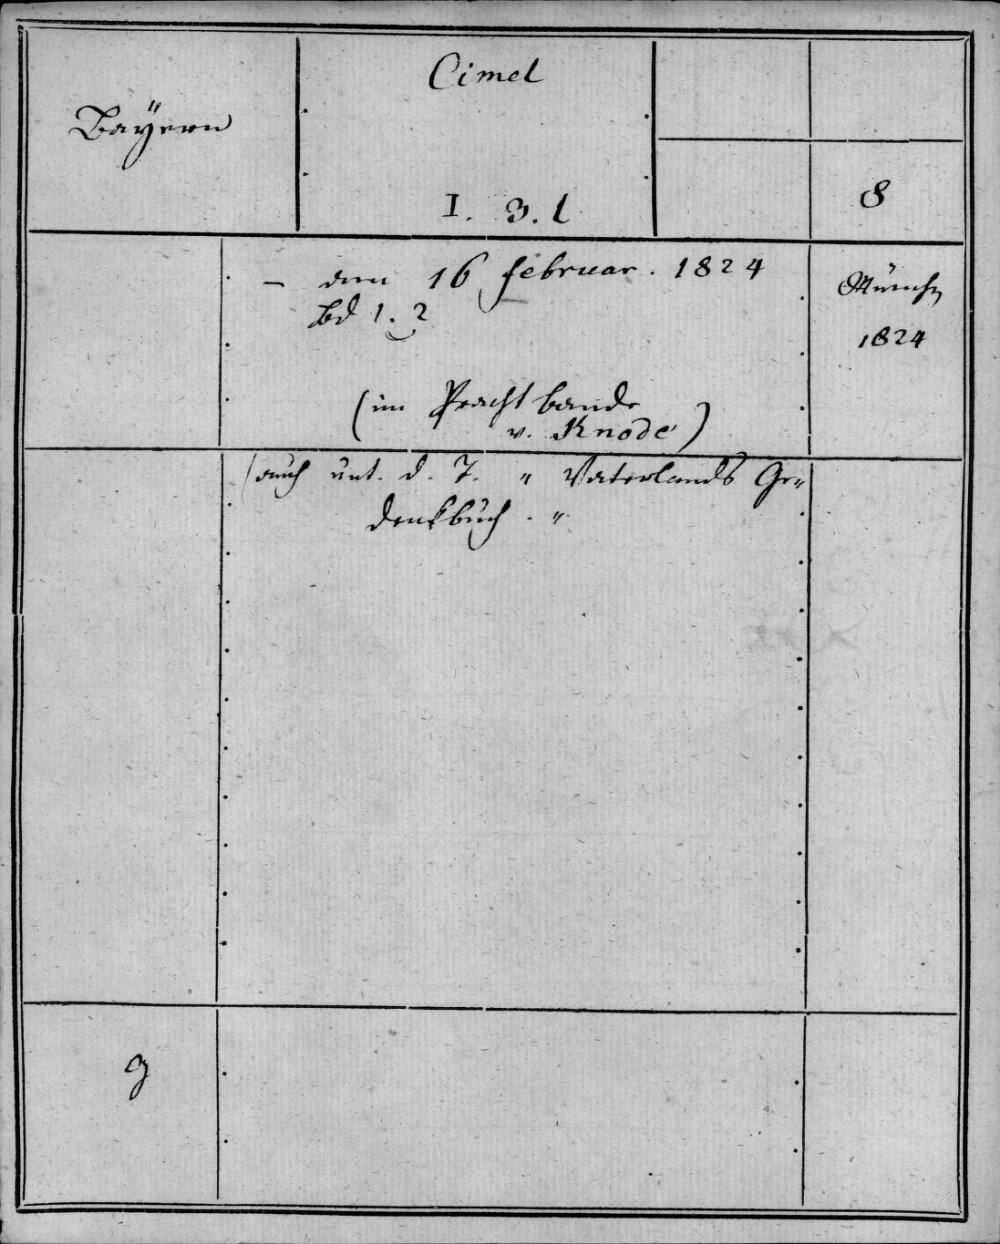 Bayern
Cimel
I. 3. l
8
– den 16 Februar. 1824
Bd 1. 2
(im Prachtbande
v. Knode)
Münch
1824
(auch unt. d. T. " Vaterlands Ge-
denkbuch. "
g